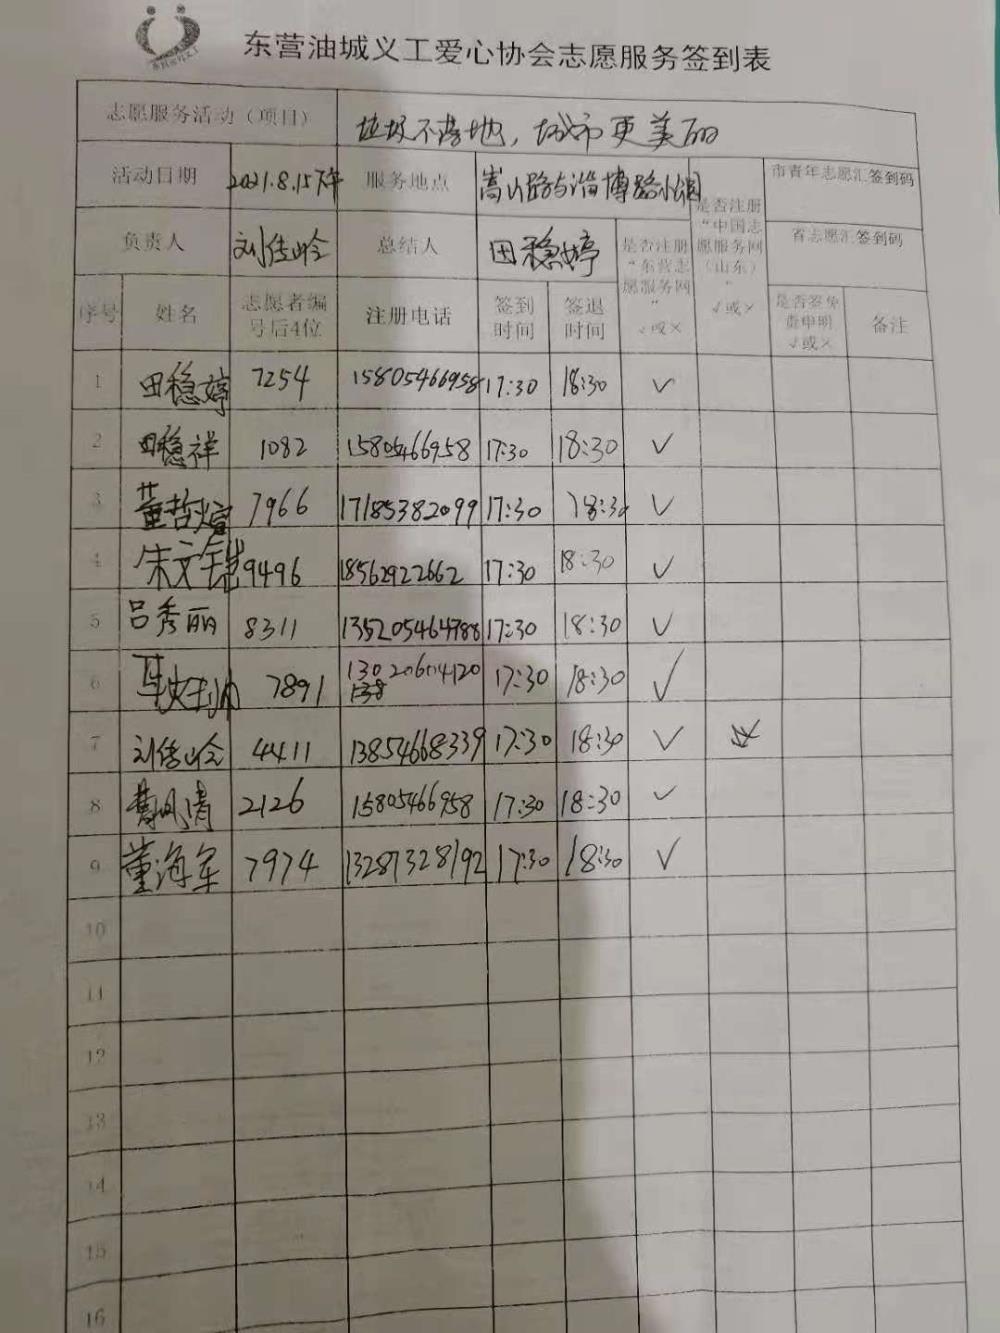 东营油城义工爱心协会志愿服务签到表
志愿服务活动（项目） 垃圾不落地，城市更美丽
活动日期 2021.8.15下午 服务地点 嵩山路与淄博路小 是否注册“中国志愿服务网（山东）” √或× 市青年志愿汇签到码
负责人 刘佳岭 总结人 田稳婷 是否注册“东营志愿服务网” √或× 省志愿汇签到码
序号 姓名 志愿者编号后4位 注册电话 签到时间 签退时间 是否签免责申明 √或× 备注
1 田稳婷 7254 15805466958 17:30 18:30 √
2 田稳祥 1082 15805466958 17:30 18:30 √
3 董哲煊 7966 17185382099 17:30 18:30 √
4 朱文锴 9496 18562922662 17:30 18:30 √
5 吕秀丽 8311 135205464788 17:30 18:30 √
6 7891 17:30 18:30 √
7 刘佳岭 4411 13854668339 17:30 18:30 √
8 2126 15805466958 17:30 18:30 √
9 董海军 7974 13287328192 17:30 18:30 √
10
11
12
13
14
15
16